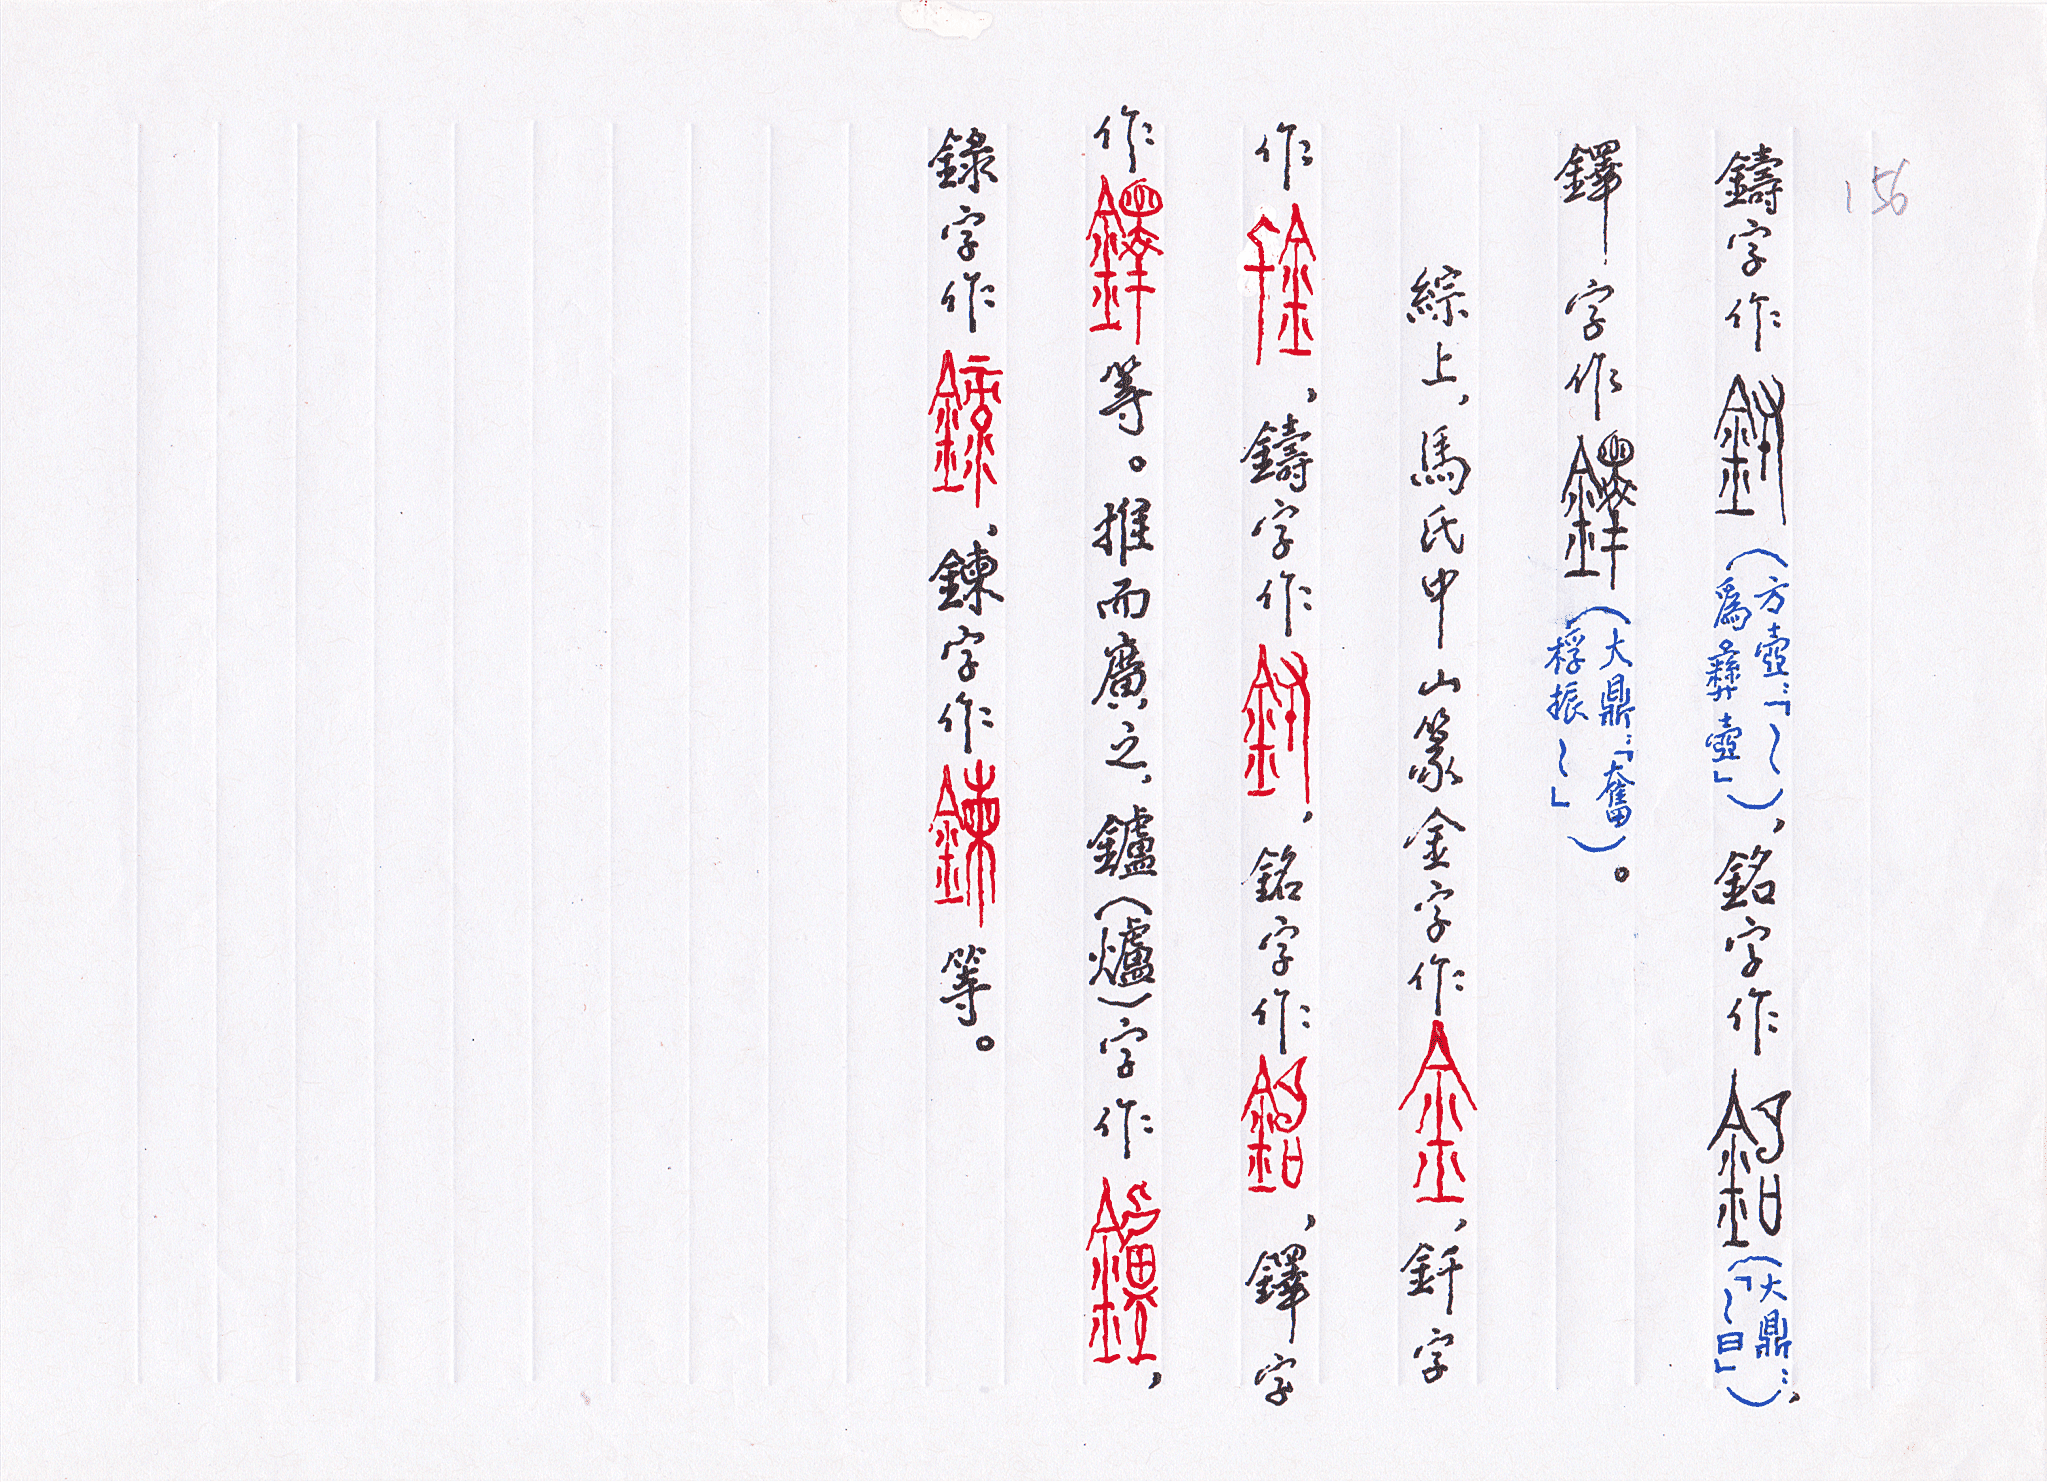 156
鑄字作（方壺：「～爲彝壺」），銘字作（大鼎：「～曰」），
鐸字作（大鼎：「奮桴振～」）。
綜上，馬氏中山篆金字作，釬字
作，鑄字作，銘字作，鐸字
作等。推而廣之，鑪（爐）字作，
錄字作，鍊字作等。